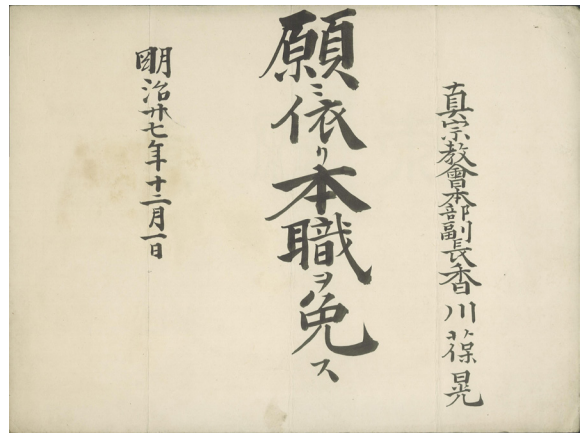 真宗教會本部副長香川葆晃
願ニ依リ本職ヲ免ス
明治廿七年十二月一日